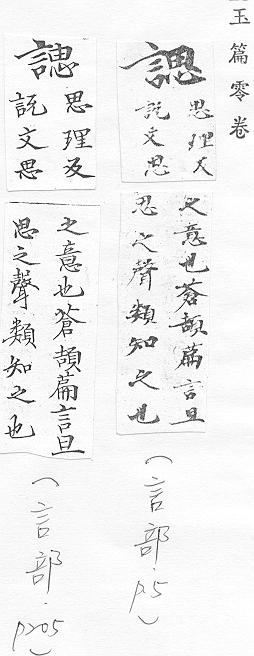 玉篇零卷
諰
思理反
說文思
之意也蒼頡萹言旦
思之聲類知之也
(言部.p5)
諰
思理反
說文思
之意也蒼頡萹言旦
思之聲類知之也
(言部.p205)